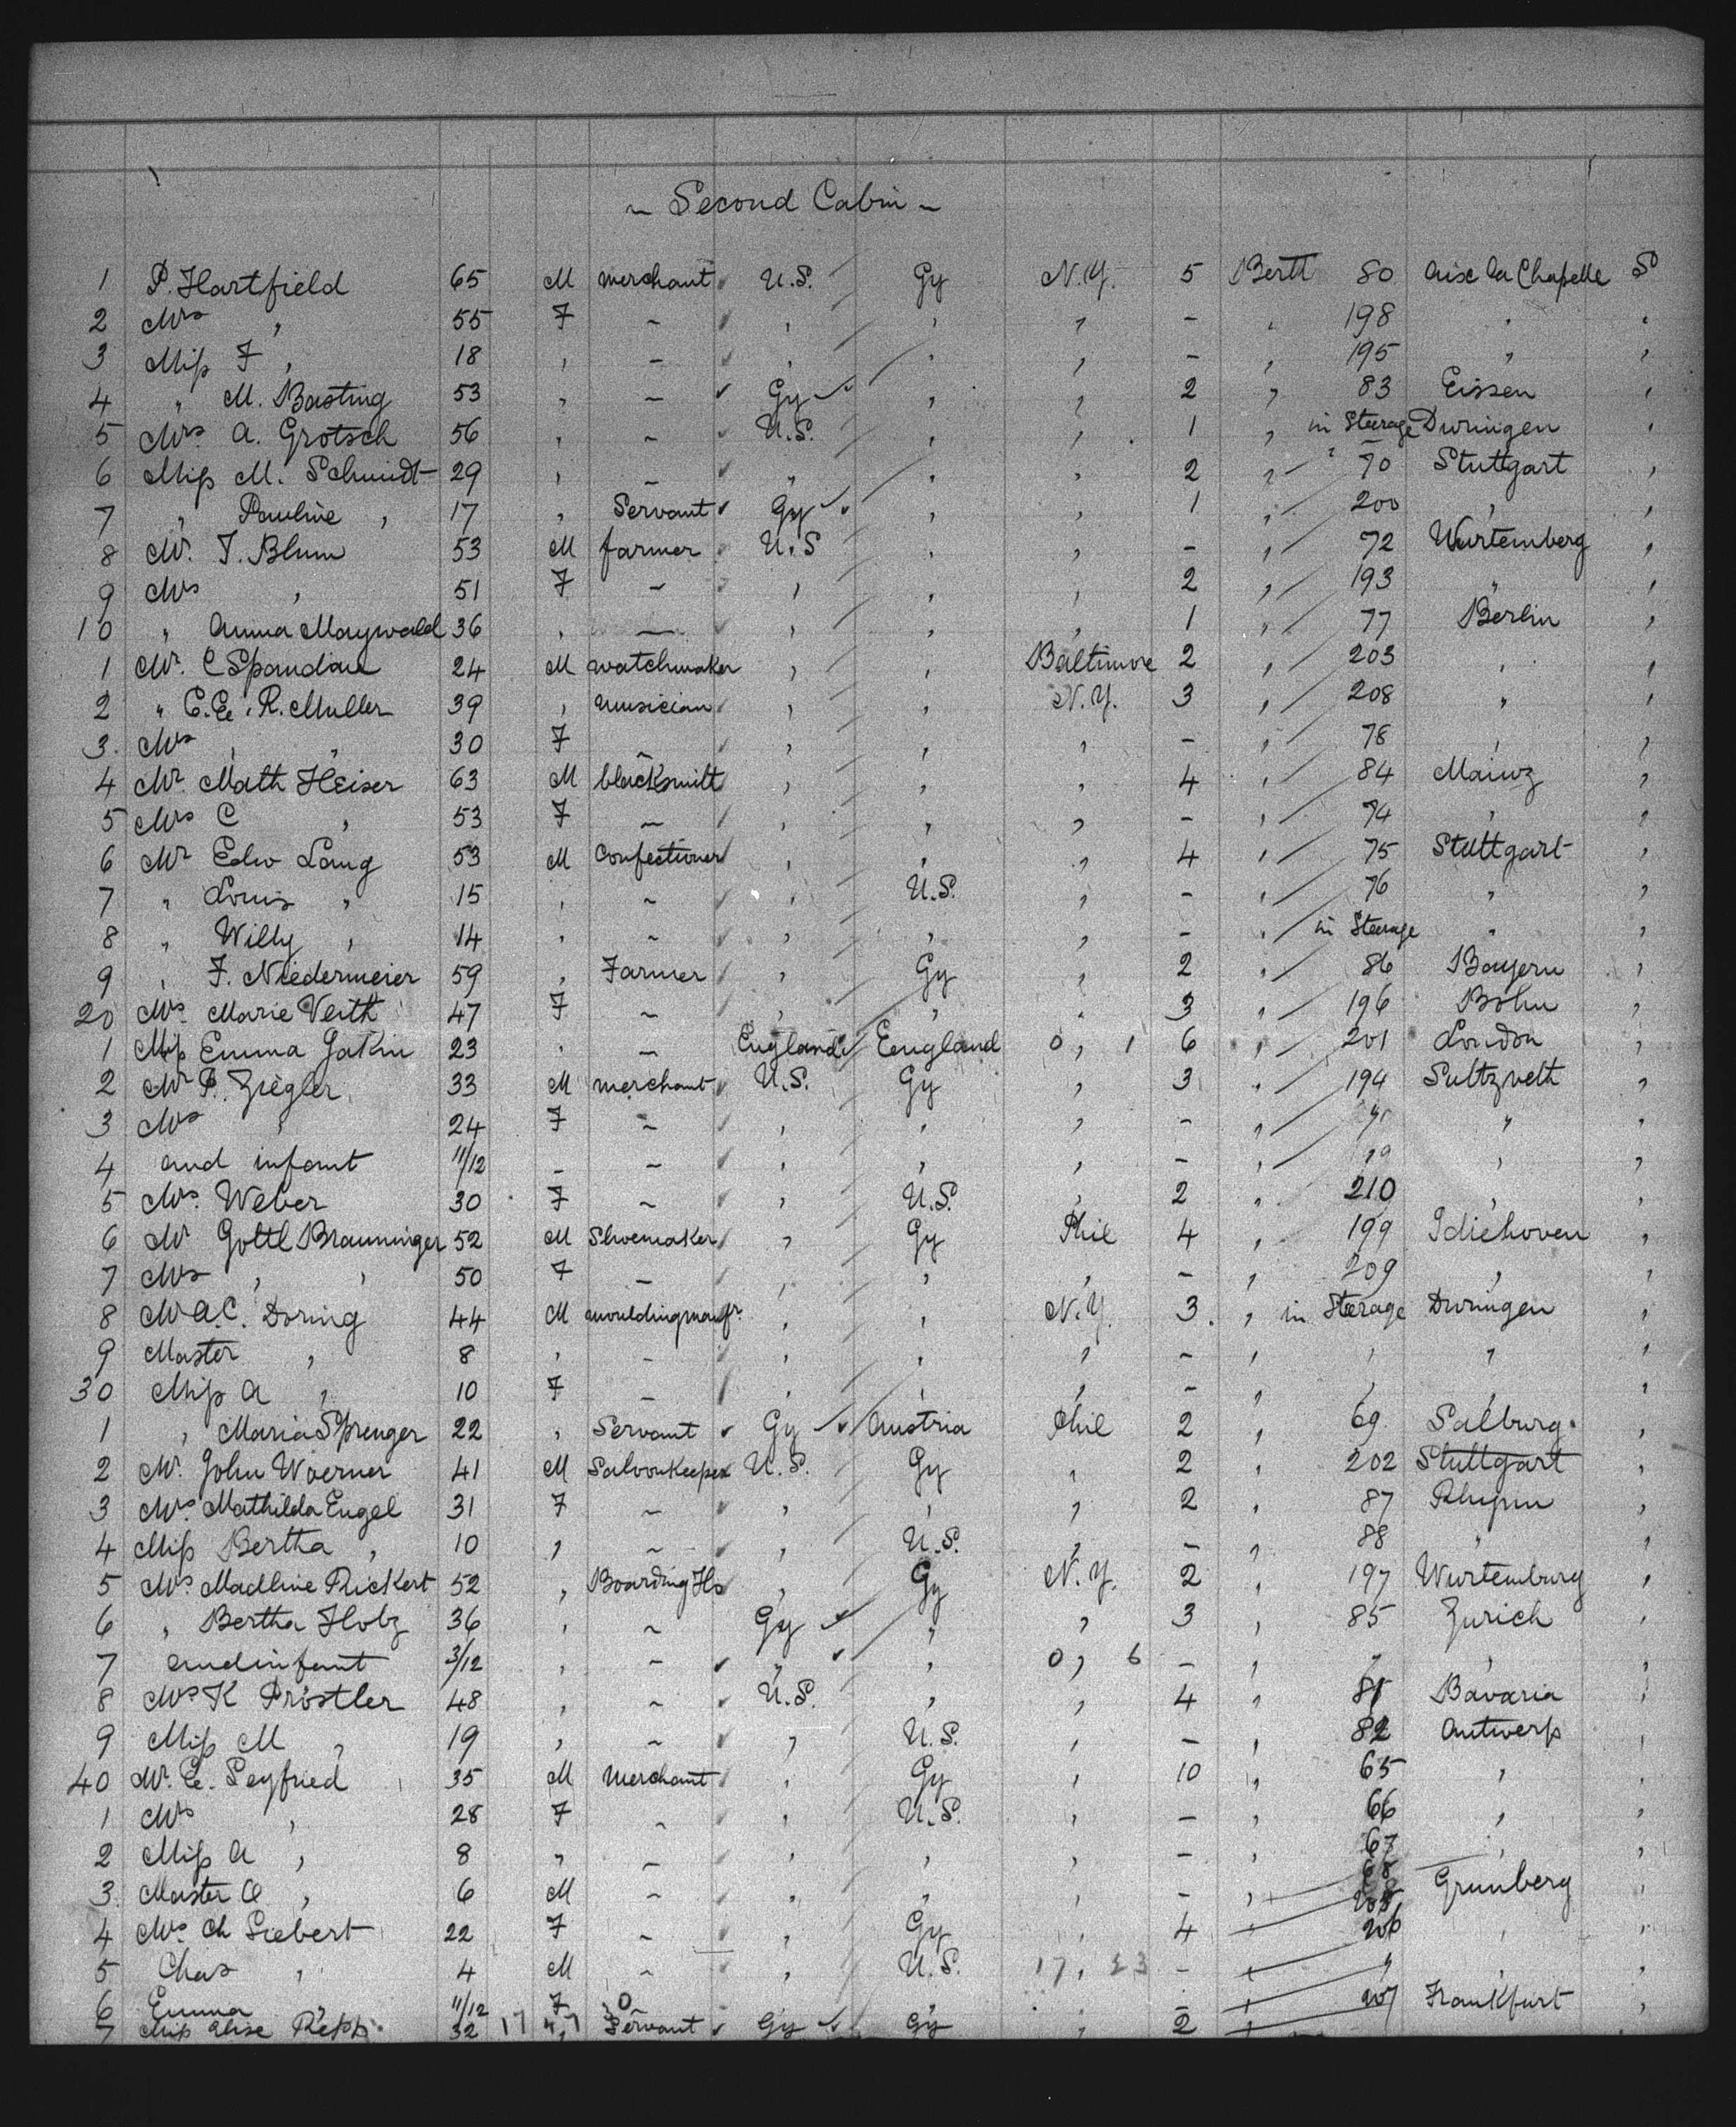 ~ Second Cabin ~
1 P. Hartfield 65 M merchant U.S. Gy N.Y. 5 Berth 80 Aix la Chapelle S
2 Mrs " 55 F ~ " " " - " 198 " "
3 Miss F " 18 " ~ " " " - " 195 " "
4 " M. Basting 53 " ~ Gy " " 2 " 83 Eissen "
5 Mrs. A. Grotsch 56 " ~ U.S. " " 1 " in Steerage Duringen "
6 Miss M. Schmidt 29 " ~ " " " 2 " 70 Stuttgart "
7 " Pauline " 17 " Servant Gy " " 1 " 200 " "
8 Mr. J. Blum 53 M farmer U.S " " - " 72 Wurtemberg "
9 Mrs " 51 F ~ " " " 2 " 193 " "
10 " Anna Maywald 36 " ~ " " " 1 " 77 Berlin "
1 Mr. C Spandau 24 M watchmaker " " Baltimore 2 " 203 " "
2 " E. E. R. Muller 39 " musician " " N.Y. 3 " 208 " "
3. Mrs " " 30 F ~ " " " - " 78 " "
4 Mr. Math Heiser 63 M blacksmith " " " 4 " 84 Mainz "
5 Mrs C " 53 F ~ " " " - " 74 " "
6 Mr Edw Lang 53 M Confectioner " " " 4 " 75 Stuttgart "
7 " Louis " 15 " ~ " U.S. " - " 76 " "
8 " Willy " 14 " ~ " " " - " in Steerage " "
9 " F. Niedermeier 59 " Farmer " Gy " 2 " 86 Bayern "
20 Mrs. Marie Veith 47 F ~ " " " 3 " 196 Bohn "
1 Miss Emma Gakin 23 " ~ England England 0, 1 6 " 201 London "
2 Mr P. Ziegler 33 M merchant U.S. Gy " 3 " 194 " "
3 Mrs " 24 F ~ " " " - " " " "
4 and infant 11/12 - ~ " " " - " " "
5 Mrs. Weber 30 F ~ " U.S. " 2 " 210 " "
6 Mr Gottl Brauninger 52 M Shoemaker " Gy Phil 4 " 199 "
7 Mrs " " 50 F ~ " " " - " 209 " "
8 Mr A.C. Doring 44 M mouldingmanfr. " " N.Y. 3. " in Steerage Duringen "
9 Master " 8 " ~ " " " - " " " "
30 Miss A " 10 F ~ " " " - " " " "
1 " Maria Sprenger 22 " Servant Gy Austria Phil 2 " 69 Salburg. "
2 Mr. John Woerner 41 M Saloonkeeper U.S. Gy " 2 " 202 Stuttgart "
3 Mrs. Mathilda Engel 31 F ~ " " " 2 " 87 "
4 Miss Bertha " 10 " ~ " U.S. " - " 88 " "
5 Mrs. Madline Rickert 52 " Boarding Hs " Gy N.Y. 2 " 197 Wurtemburg "
6 " Bertha Holz 36 " ~ Gy " " 3 " 85 Zurich "
7 and infant 3/12 " ~ " " 0, 6 - " " " "
8 Mrs K Pröstler 48 " ~ U.S. " " 4 " 81 Bavaria "
9 Miss M " 19 " ~ " U.S. " - " 82 Antwerp
40 Mr. E. Seyfried 35 M Merchant " Gy " 10 " 65 " "
1 Mrs " 28 F ~ " U.S. " - " 66 " "
2 Miss A " 8 " ~ " " " - " 67 " "
3. Master O " 6 M ~ " " " - " 68 Grunberg "
4 Mrs. Ch Siebert 22 F ~ " Gy " 4 205 206 " "
5 Chas " 4 M ~ " U.S. 17, 23 - " " "
6 Emma " 11/12 F 0 " " - 207 Frankfurt "
7 Miss Elise Repp. 32 17 " Servant Gy Gy " 2